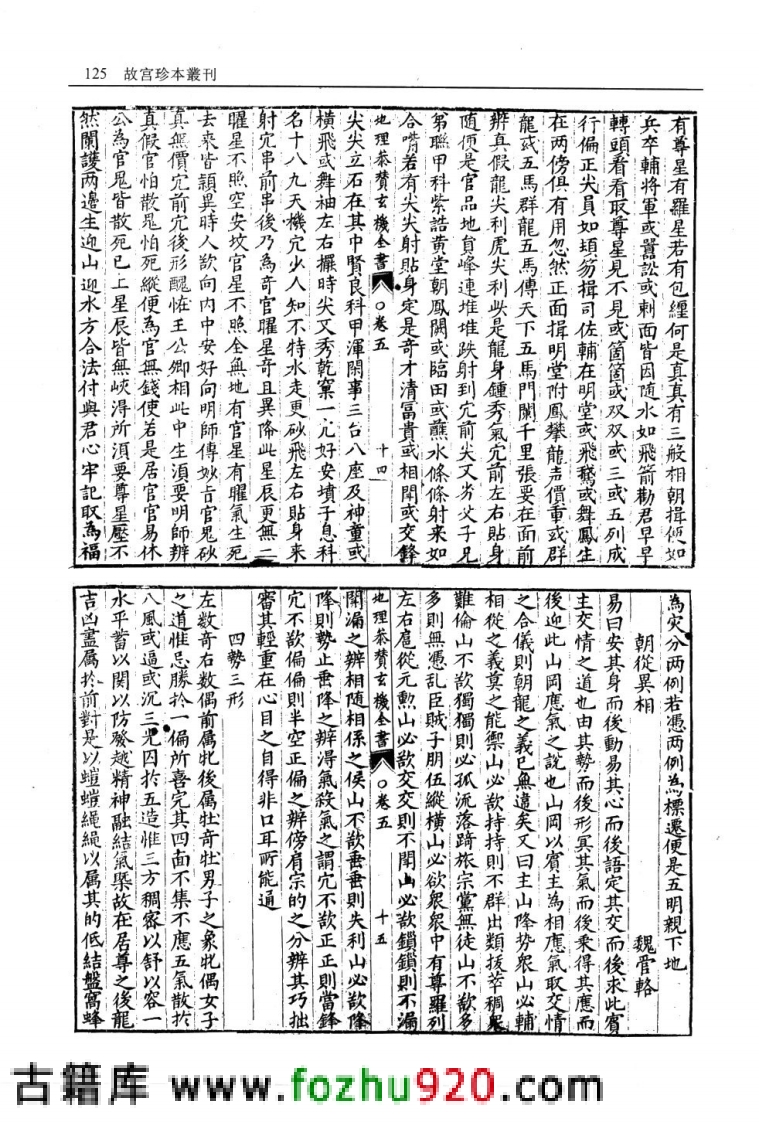 125 故宮珍本叢刊
有尊星有羅星若有包纏何是真真有三般相朝揖便如
兵卒輔將軍或囂訟或刺面皆因隨水如飛箭勸君早早
轉頭看看取尊星見不見或箇箇或双双或三或五列成
行偏正尖員如頓笏揖司佐輔在明堂或飛鵞或舞鳳生
在兩傍俱有用忽然正面揖明堂附鳳攀龍声價重或群
龍或五馬群龍五馬傳天下五馬門闌千里張要在面前
辨真假龍尖利虎尖利此是龍身鍾秀氣穴前左右貼身
隨便是官品地貟峰連堆堆趺射到穴前尖又劣父子兄
弟聯甲科紫誥黄堂朝鳳闕或臨田或蘸水條條射来如
合嘴若有尖尖射貼身定是奇才清冨貴或相閗或交鋒
地理叅賛玄機全書 ○卷五 十四
尖尖立石在其中賢良科甲渾閑事三台八座及神童或
横飛或舞袖左右攞時尖又秀乾窠一穴好安墳子息科
名十八九天機穴少人知不特水走更砂飛左右貼身来
射穴串前串後乃為奇官曜星奇且異降此星辰更無二
曜星不照空安坟官星不照全無地有官星有曜氣生死
去来皆頴異時人欲向内中安好向明師傳妙㫖官鬼砂
真無價穴前穴後形醜恠王公卿相此中生湏要明師辨
真假官怕散鬼怕死縱便為官無錢使若是居官官易休
公為官鬼皆散死已上星辰皆無峽得所湏要尊星壓不
然関護两邊生迎山迎水方合法付與君心牢記取為福
為灾分两例若憑两例為標遷便是五明親下地
朝從異相 魏管輅
易曰安其身而後動易其心而後語定其交而後求此賔
主交情之道也由其勢而後形冥其氣而後乗得其應而
後迎此山岡應氣之說也山岡以賔主為相應氣取交情
之合儀則朝龍之義已無遺矣又曰主山降势衆山必輔
相從之義莫之能禦山必欲持持則不群出類拔萃稠衆
難倫山不欲獨獨則必孤流落踦旅宗黨無徒山不欲多
多則無憑乱臣賊子朋伍縱横山必欲衆衆中有尊羅列
左右扈從元勲山必欲交交則不閗山必欲鎖鎖則不漏
地理叅賛玄機全書 ○卷五 十五
閗漏之辨相隨相係之侯山不欲垂垂則失利山必欲降
降則势止垂降之辨淂氣殺氣之謂穴不欲正正則當鋒
穴不欲偏偏則半空正偏之辨傍肩宗的之分辨其巧拙
審其輕重在心目之自得非口耳所能通
四勢三形
左数奇右数偶前属牝後属牡奇牡男子之象牝偶女子
之道惟忌勝於一偏所喜完其四面不集不應五氣散扵
八風或逼或沉三光囚扵五造惟三方稠宻以舒以容一
水平蓄以関以防駿越精神融結氣槩故在居尊之後龍
吉凶盡属扵前對是以螘螘䋲䋲以属其的低結盤窩蜂
古籍库 www.fozhu920.com